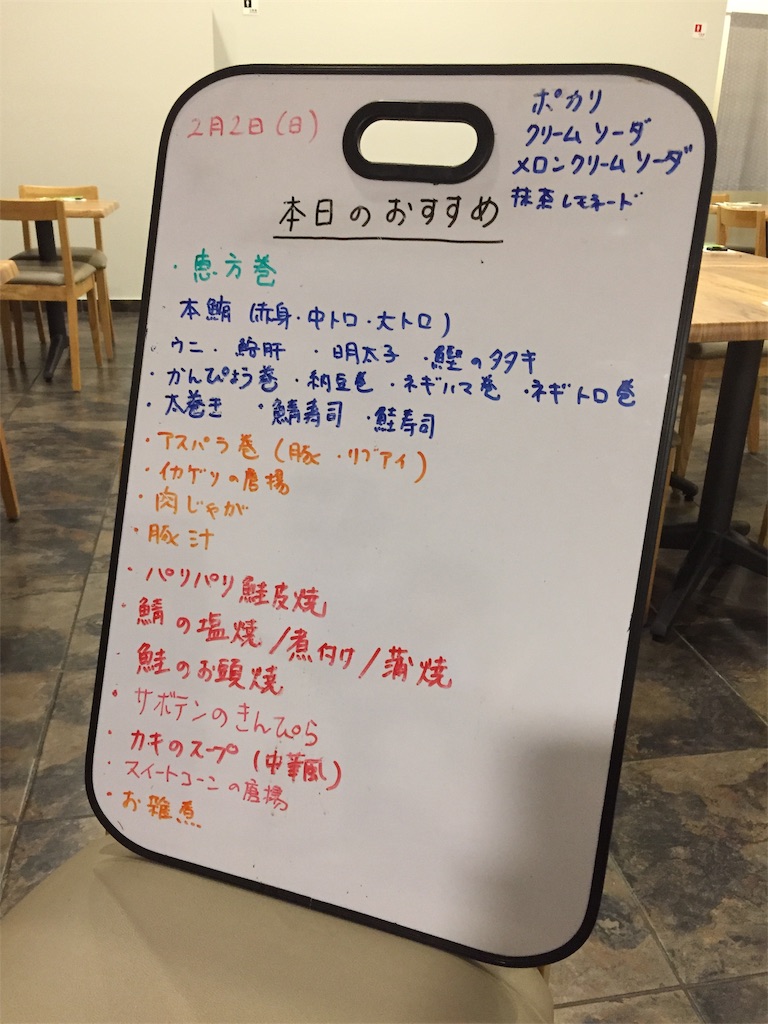 2月2日(日)
ポカリ
クリームソーダ
メロンクリームソーダ
抹茶レモネード
本日のおすすめ
・恵方巻
本鮪(赤身・中トロ・大トロ)
・ウニ・鮟肝・明太子・鰹のタタキ
・かんぴょう巻・納豆巻・ネギハマ巻・ネギトロ巻
・太巻き・鯖寿司・鮭寿司
・アスパラ巻(豚・リブアイ)
・イカゲソの唐揚
・肉じゃが
・豚汁
・パリパリ鮭皮焼
・鯖の塩焼/煮付け/蒲焼
鮭のお頭焼
・サボテンのきんぴら
・カキのスープ(中華風)
・スイートコーンの唐揚
・お雑煮